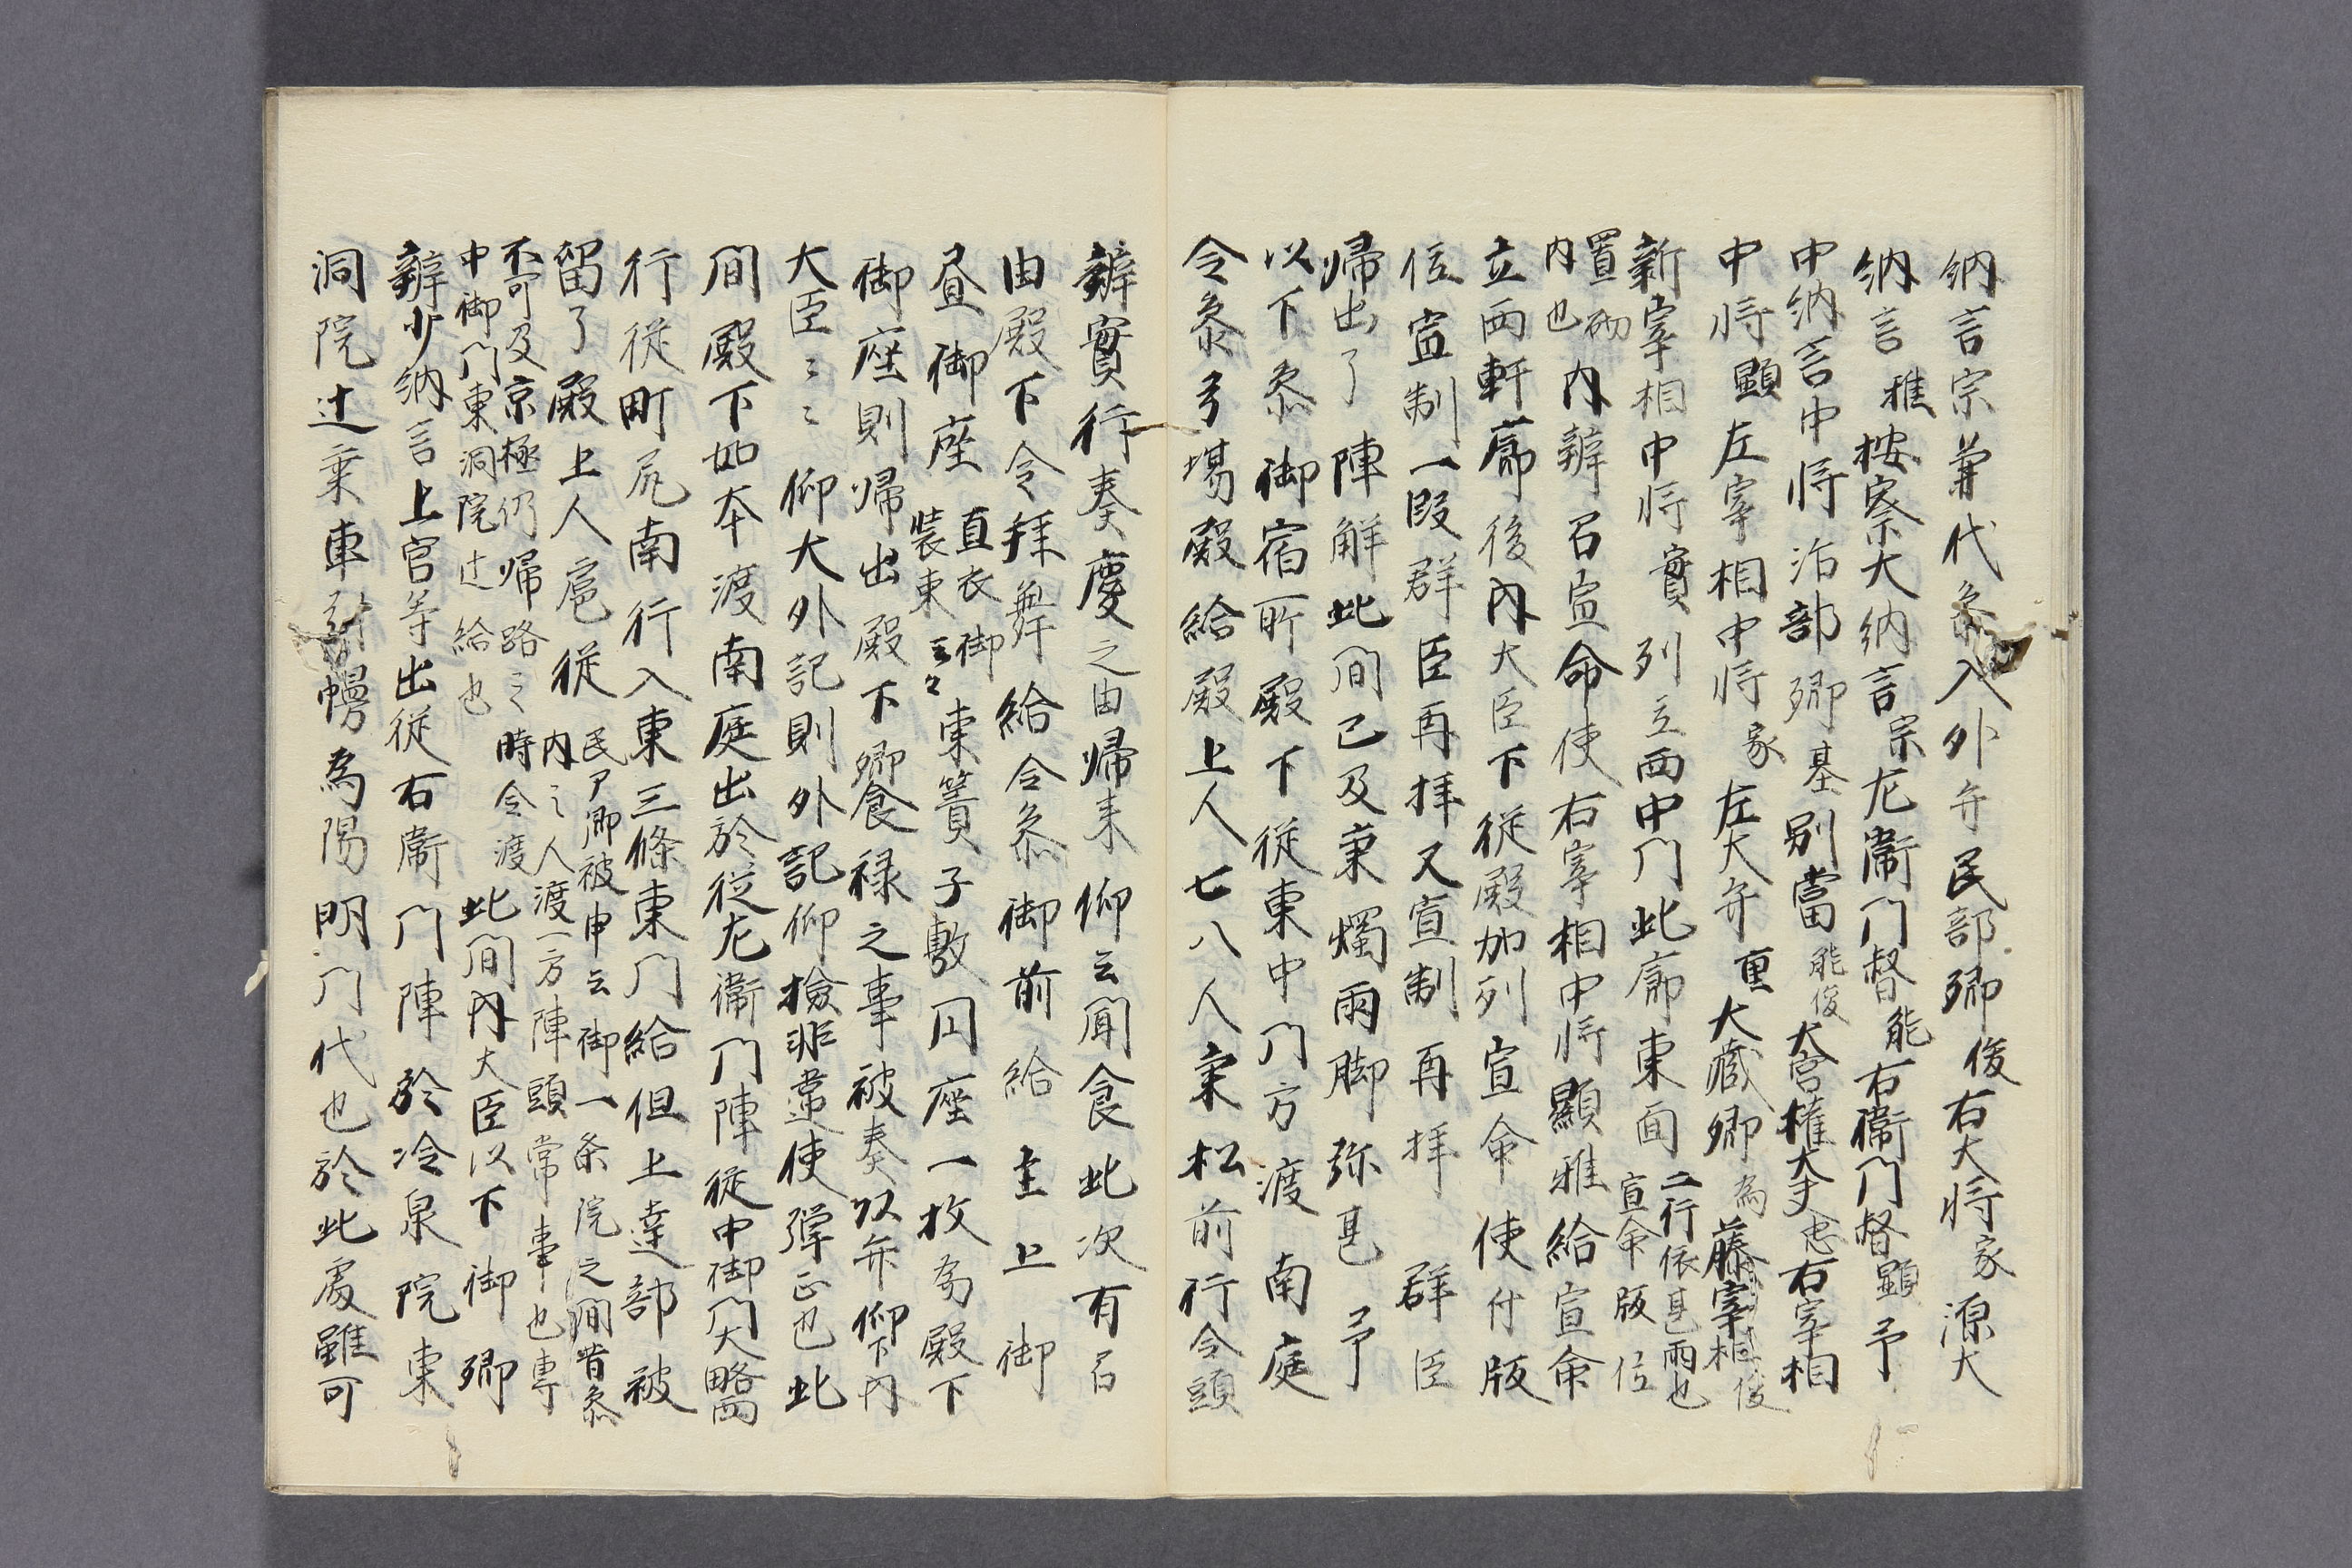 納言宗兼代参入外弁民部卿俊右大将家源大
納言雅按察大納言宗左衛門督能右衛門督顕予
中納言中将治部卿基別當能俊大宮権大夫忠右宰相
中将顕左宰相中将家左大弁重大蔵卿為藤宰相俊
新宰相中将實列立西中門北廊東面二行依甚雨也
宣命版位
置砌
内也内辨召宣命使右宰相中将顕雅給宣命
立西軒廊後内大臣下従殿加列宣命使付版
位宣制一段群臣再拝又宣制再拝群臣
帰出了陣解此間已及秉燭雨脚弥甚予
以下参御宿所殿下従東中門方渡南庭
令参弓場殿給殿上人七八人秉松前行令頭
辨實行奏慶之由帰来仰云聞食此次有召
由殿下令拝舞給令参御前給主上御
昼御座直衣御
装束云々東簀子敷円座一枚為殿下
御座則帰出殿下饗禄之事被奏以弁仰下内
大臣々々仰大外記則外記仰撿非違使弾正也此
間殿下如本渡南庭出於従左衛門陣従中御門大略西
行従町尻南行入東三條東門給但上達部被
留了殿上人扈従民ア卿被申云御一条院之間昔参
内之人渡一方陣頭常事也専
不可及京極仍帰路之時令渡
中御門東洞院辻給也此間内大臣以下御卿
辨少納言上官等出従右衛門陣於冷泉院東
洞院辻乗車 幔為陽明門代也於此處雖可